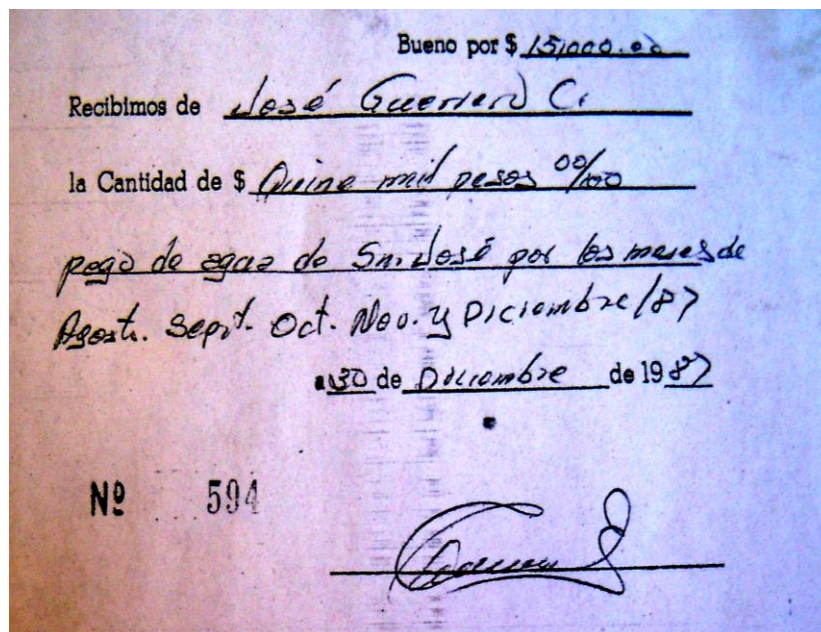 Bueno por $ 15,000.00
Recibimos de José Guerrero C.
la Cantidad de $ Quine mil pesos 00/100
pago de agua de Sn. José por los meses de
Agost. Sept. Oct. Nov. y Diciembre/87
a 30 de Diciembre de 1987
Nº 594